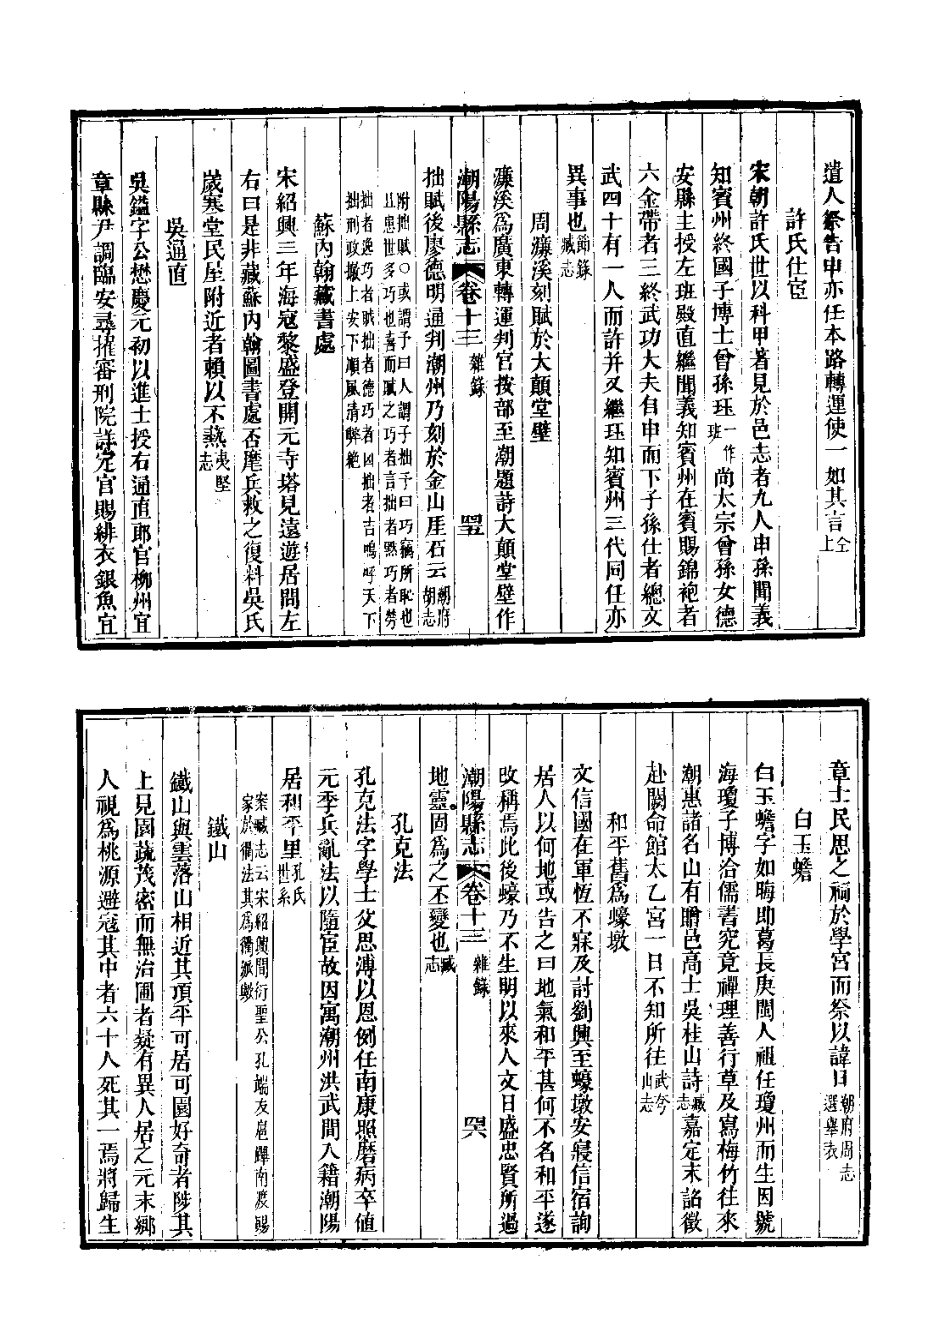 遣人祭告申亦任本路轉運使一如其言仝上
許氏仕宦
宋朝許氏世以科甲著見於邑志者九人申孫聞義
知賓州終國子博士曾孫珏一作班尚太宗曾孫女德
安縣主授左班殿直繼聞義知賓州在賓賜錦袍者
六金帶者三終武功大夫自申而下子孫仕者總文
武四十有一人而許并又繼珏知賓州三代同任亦
異事也歸錄臧志
周濂溪刻賦於大顛堂壁
濂溪爲廣東轉運判官按部至潮題詩大顛堂壁作
潮陽縣志 卷十三 雜錄
拙賦後廖德明通判潮州乃刻於金山厓石云潮府胡志
附拙賦○或謂予曰人謂子拙予曰巧竊所恥也
且患世多巧也喜而賦之巧者言拙者黙巧者勞
拙者逸巧者賊拙者德巧者凶拙者吉嗚呼天下
拙刑政撤上安下順風清弊絶
蘇內翰藏書處
宋紹興三年海寇黎盛登開元寺塔見遠遊居問左
右曰是非藏蘇內翰圖書處否麾兵救之復料吳氏
歲寒堂民屋附近者賴以不爇夷堅志
吳通直
吳鎰字公懋慶元初以進士授右通直郎官柳州宜
章縣尹調臨安尋擢審刑院詳定官賜緋衣銀魚宜
章士民思之祠於學宮而祭以諱日潮府周志選舉表
白玉蟾
白玉蟾字如晦即葛長庚閩人祖任瓊州而生因號
海瓊子博洽儒書究竟禪理善行草及寫梅竹往來
潮惠諸名山有贈邑高士吳桂山詩臧志嘉定末詔徵
赴闕命館太乙宮一日不知所往武夸山志
和平舊爲蠔墩
文信國在軍恆不寐及討劉興至蠔墩安寢信宿詢
居人以何地或告之曰地氣和平甚何不名和平遂
改稱焉此後蠔乃不生明以來人文日盛忠賢所過
潮陽縣志 卷十三 雜錄
地靈固爲之丕變也臧志
孔克法
孔克法字學士父思溥以恩例任南康照磨病卒値
元季兵亂法以隨宦故因寓潮州洪武間入籍潮陽
居和平里孔氏世系
案臧志云宋紹興間衍聖公孔端友扈蹕南渡賜
家於衢法其爲衢派歟
鐵山
鐵山與雲落山相近其頂平可居可園好奇者陟其
上見園蔬茂密而無治圃者疑有異人居之元末鄉
人視爲桃源避寇其中者六十人死其一焉將歸生